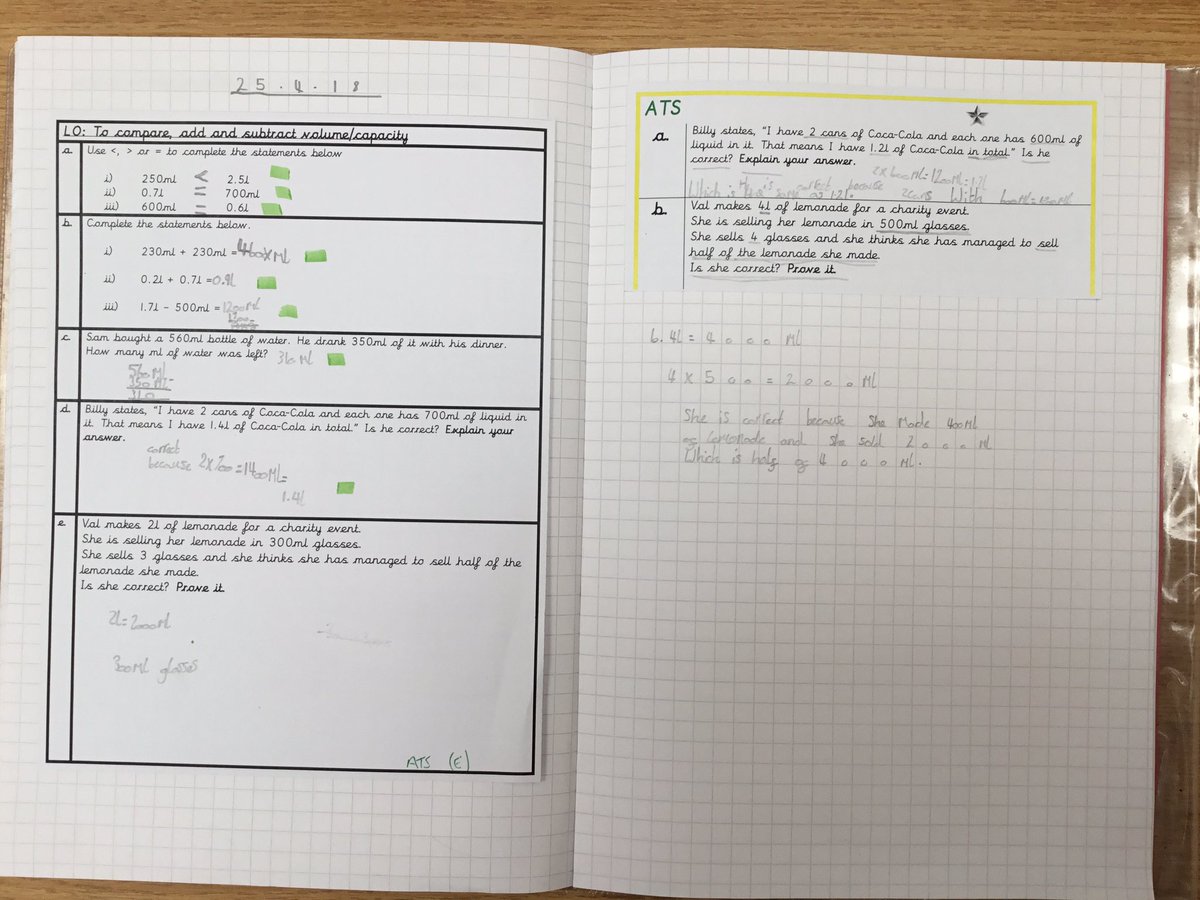 25.4.18
LO: To compare, add and subtract volume/capacity
a. Use <, > or = to complete the statements below
i) 250ml < 2.5l
ii) 0.7l = 700ml
iii) 600ml = 0.6l
b. Complete the statements below.
i) 230ml + 230ml = 460 ml
ii) 0.2l + 0.7l = 0.9l
iii) 1.7l - 500ml = 1200ml
c. Sam bought a 560ml bottle of water. He drank 350ml of it with his dinner.
How many ml of water was left? 310ml
560ml
350ml-
310
d. Billy states, "I have 2 cans of Coca-Cola and each one has 700ml of liquid in
it. That means I have 1.4l of Coca-Cola in total." Is he correct? Explain your
answer.
correct
because 2x700=1400ml=
1.4l
e. Val makes 2l of lemonade for a charity event.
She is selling her lemonade in 300ml glasses.
She sells 3 glasses and she thinks she has managed to sell half of the
lemonade she made.
Is she correct? Prove it.
2l=2000ml
300ml glasses
ATS (E)
ATS
a. Billy states, "I have 2 cans of Coca-Cola and each one has 600ml of
liquid in it. That means I have 1.2l of Coca-Cola in total." Is he
correct? Explain your answer.
2x600ml=1200ml=1.2l
He is correct because 2cans with 600ml=1200ml
Which is same as 1.2l.
b. Val makes 4l of lemonade for a charity event.
She is selling her lemonade in 500ml glasses.
She sells 4 glasses and she thinks she has managed to sell
half of the lemonade she made.
Is she correct? Prove it.
b. 4l = 4000 ml
4 x 500 = 2000ml
She is correct because She made 400ml
of lemonade and She sold 2000 ml
Which is half of 4000 ml.